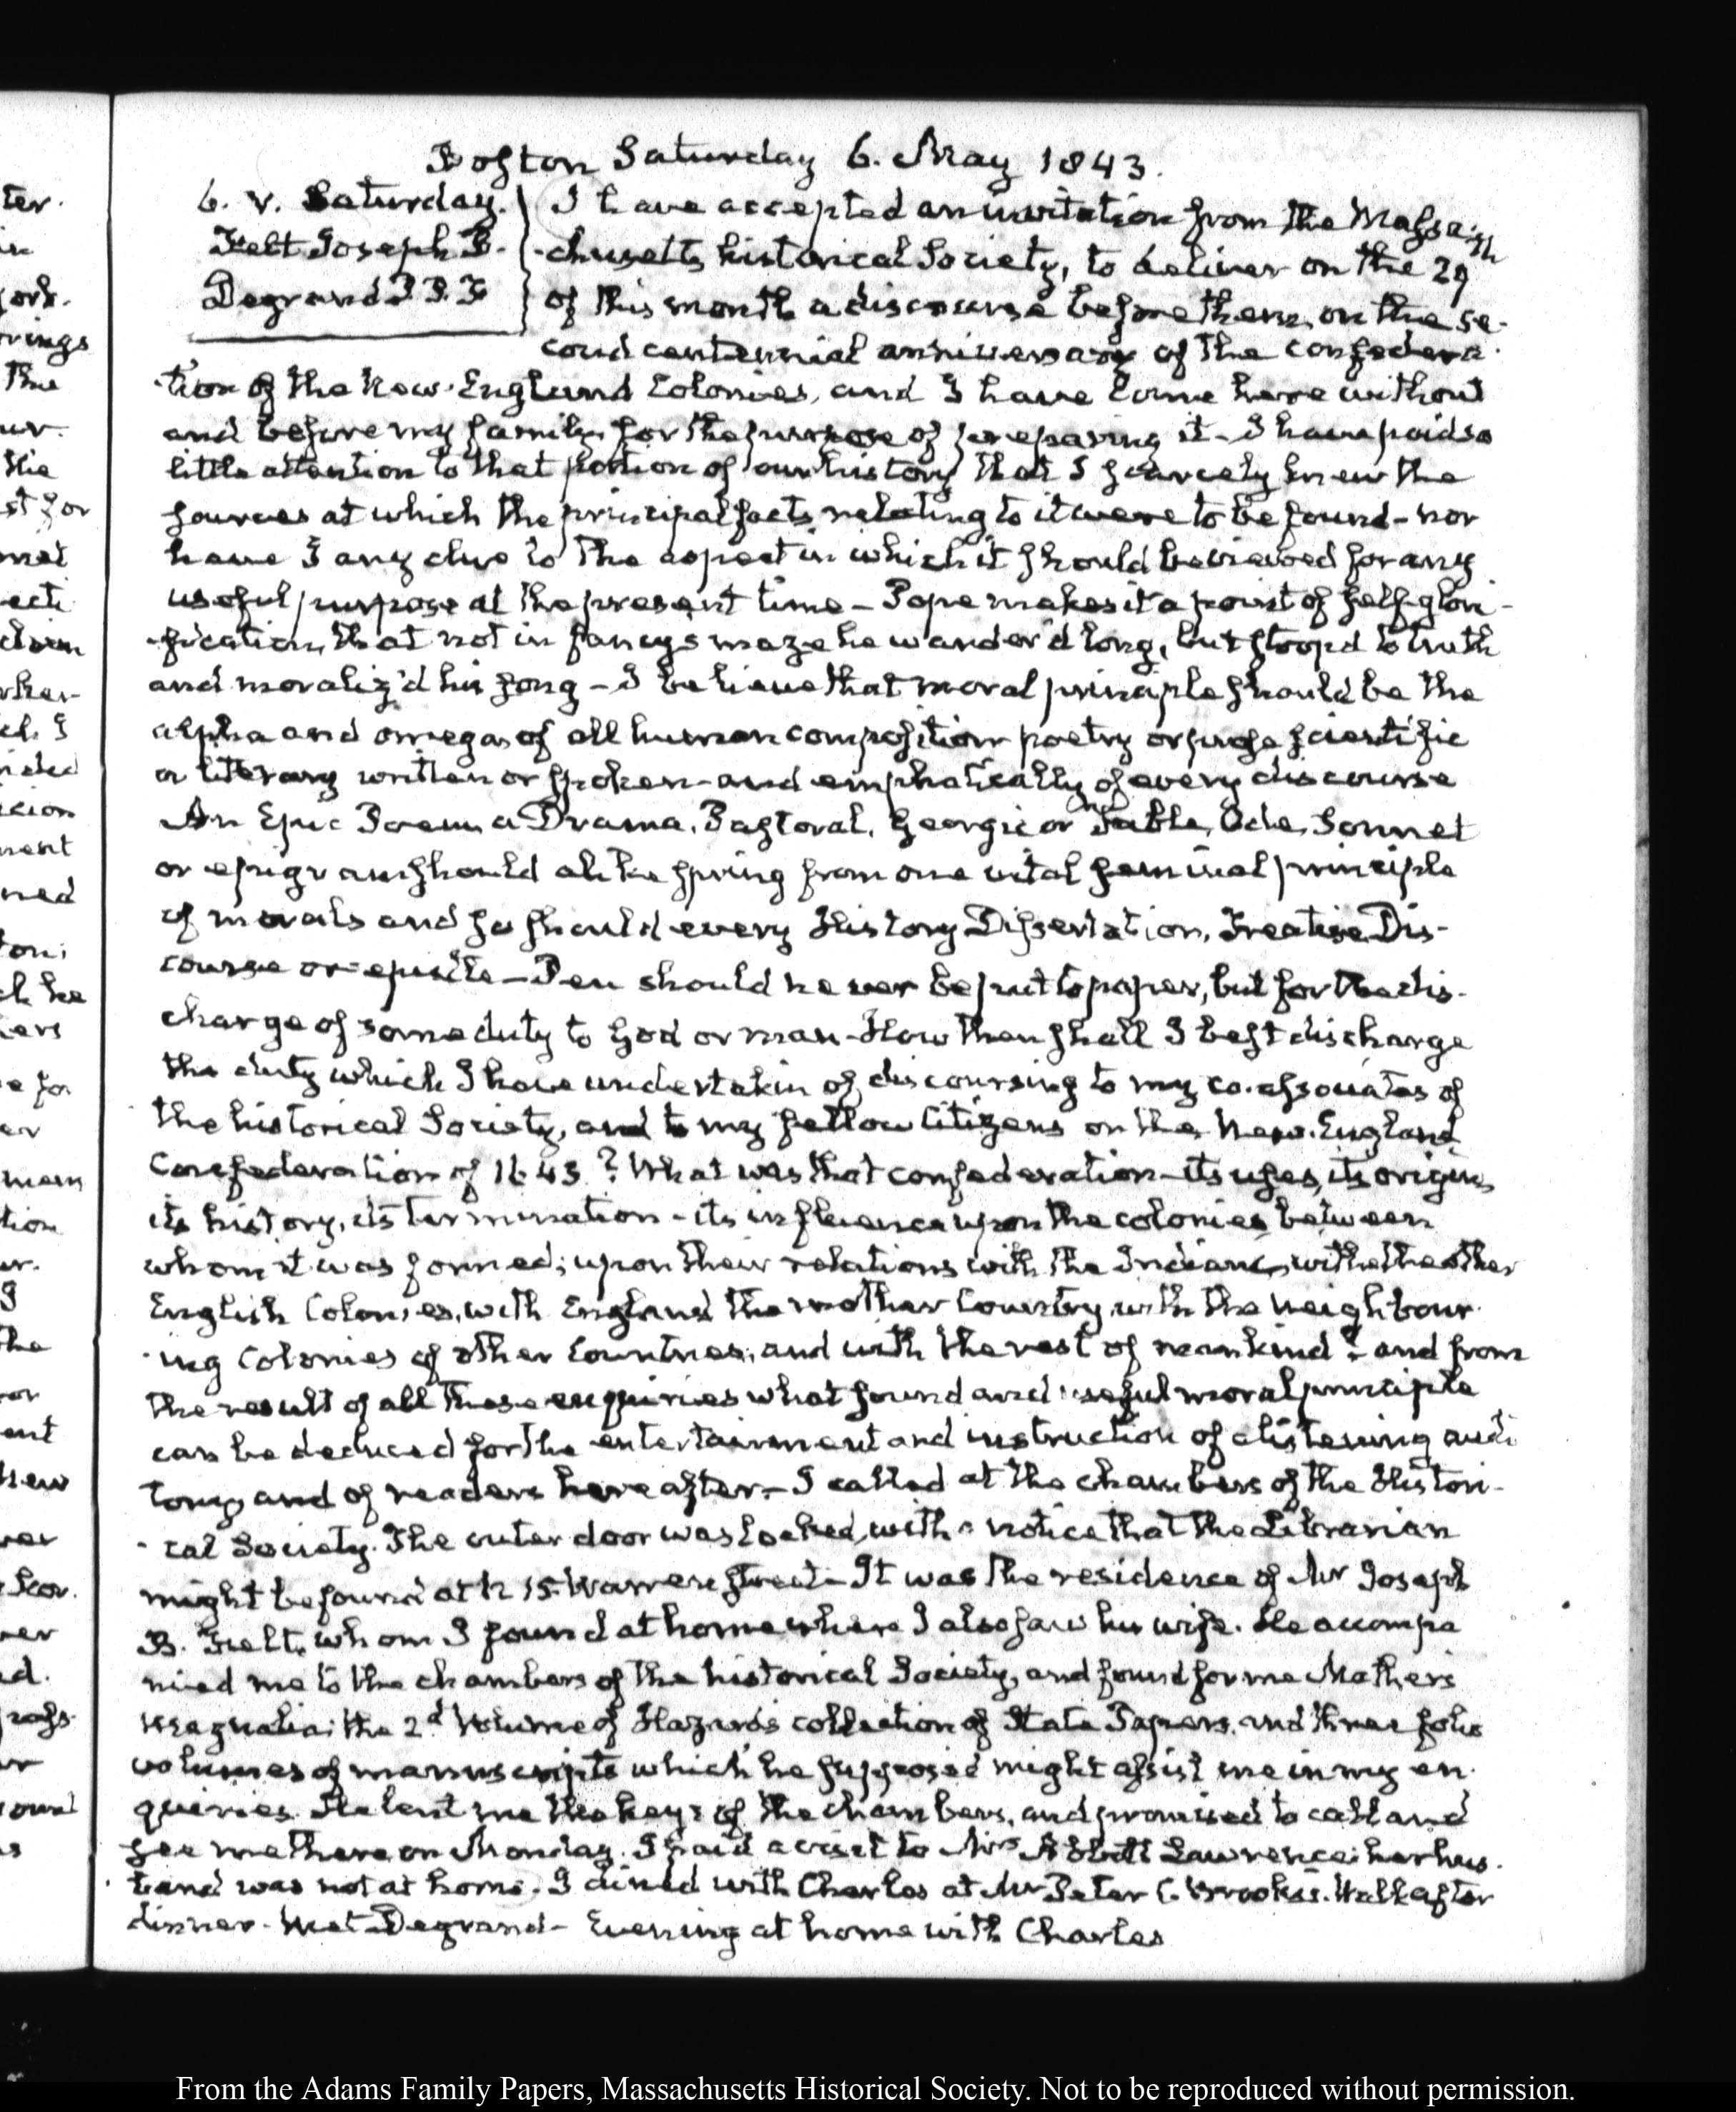 Boston Saturday 6. May 1843.
6. V. Saturday.
Felt Joseph B.
Degrand P. P. F
I have accepted an invitation from the Massa-
-chusetts historical Society, to deliver on the 29th
of this month a discourse before them, on the se-
cond centennial anniversary of the confedera-
-tion of the New-England Colonies, and I have come here without
and before my family, for the purpose of preparing it - I have paid so
little attention to that portion of our history that I scarcely knew the
sources at which the principal facts relating to it were to be found - nor
have I any clue to the aspect in which it should be viewed for any
useful purpose at the present time - Pope makes it a point of self-glori-
-fication, that not in fancy's maze he wander'd long, but stoop'd to truth
and moraliz'd his song - I believe that moral principle should be the
alpha and omega of all human composition poetry or prose scientific
or literary written or spoken - and emphatically of every discourse
An Epic Poem, a Drama, Pastoral, Georgic or Fable, Ode, Sonnet
or epigram should alike spring from one vital seminal principle
of morals and so should every History Dissertation, Treatise Dis-
course or epistle - Pen should never be put to paper, but for the dis-
charge of some duty to God or man - How then shall I best discharge
the duty which I have undertaken of discoursing to my co-associates of
the historical Society, and to my fellow Citizens on the New-England
Confederation of 1643? What was that confederation - its uses, its origin,
its history, its termination - its influence upon the colonies between
whom it was formed; upon their relations with the Indians, with the other
English Colonies, with England the mother Country, with the neighbour-
-ing Colonies of other Countries, and with the rest of mankind? - and from
the result of all these enquiries what sound and useful moral principle
can be deduced for the entertainment and instruction of a listening audi
tory, and of readers hereafter - I called at the chambers of the Histori-
-cal Society. The outer door was locked, with a notice that the Librarian
might be found at N 15. Warren Street - It was the residence of Mr Joseph
B. Felt, whom I found at home where I also saw his wife. He accompa
nied me to the chambers of the historical Society, and found for me Mather's
Magnalia; the 2d Volume of Hazard's collection of State Papers, and three folio
volumes of manuscripts which he supposed might assist me in my en-
quiries. He lent me the keys of the chambers, and promised to call and
see me there on Monday. I paid a visit to Mrs Abbott Lawrence; her hus-
-band was not at home. I dined with Charles at Mr Peter C. Brooks's. Walk after
dinner - Met Degrand - Evening at home with Charles
From the Adams Family Papers, Massachusetts Historical Society. Not to be reproduced without permission.